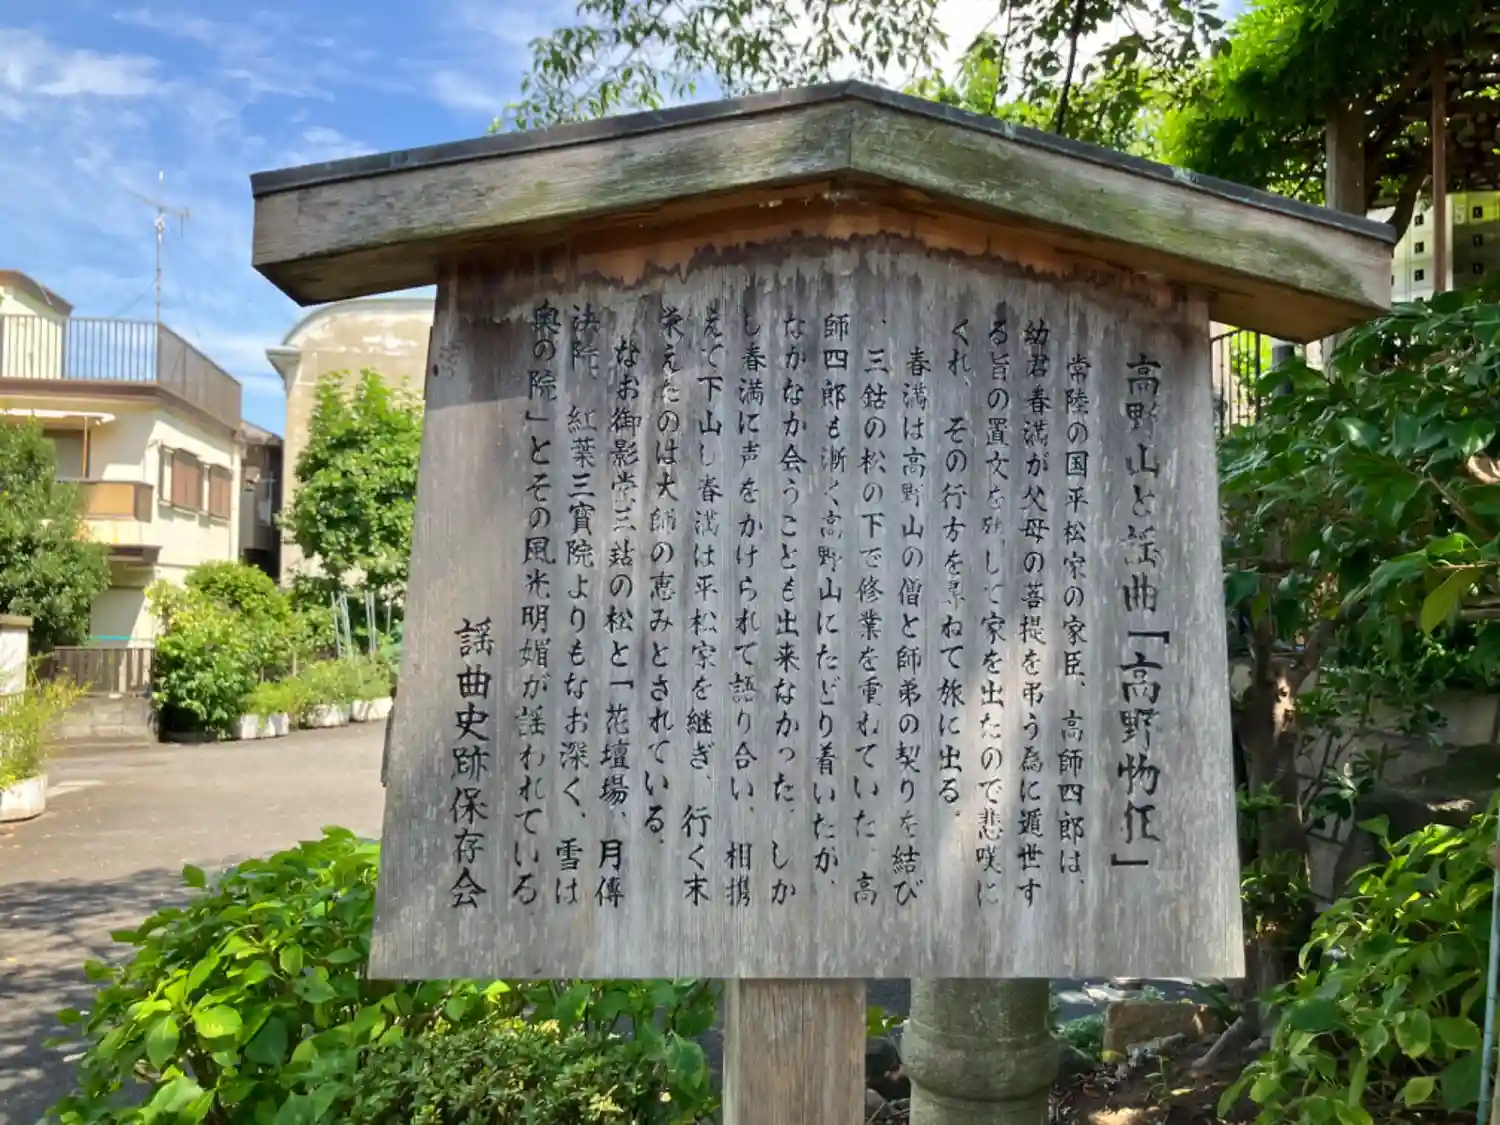 高野山と謡曲「高野物狂」
常陸の国平松家の家臣、高師四郎は、
幼君春満が父母の菩提を弔う為に遁世す
る旨の置文を残して家を出たので悲嘆に
くれ、その行方を尋ねて旅に出る。
春満は高野山の僧と師弟の契りを結び
、三鈷の松の下で修業を重ねていた。高
師四郎も漸く高野山にたどり着いたが、
なかなか会うことも出来なかった。しか
し春満に声をかけられて語り合い、相携
えて下山し春満は平松家を継ぎ、行く末
栄えたのは大師の恵みとされている。
なお御影堂三鈷の松と「花壇場、月傳
法院、紅葉三寳院よりもなお深く、雪は
奥の院」とその風光明媚が謡われている
謡曲史跡保存会